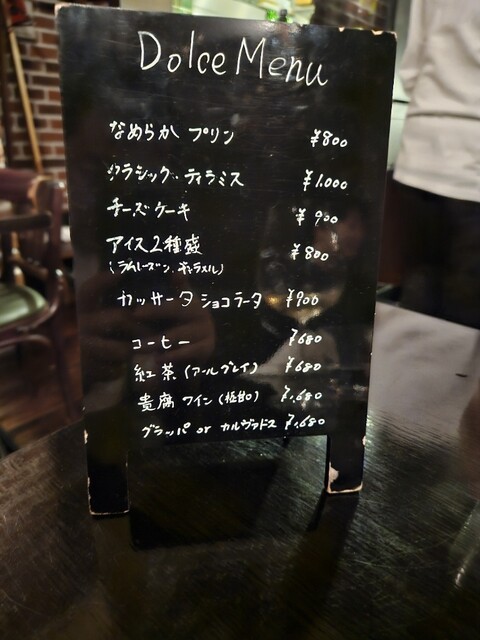 Dolce Menu
なめらか プリン ¥800
クラシック ティラミス ¥1.000
チーズケーキ ¥900
アイス2種盛 ¥800
(ラムレーズン、キャラメル)
カッサータ ショコラータ ¥900
コーヒー ¥680
紅茶 (アールグレイ) ¥680
貴腐 ワイン (極甘) ¥1.680
グラッパ or カルヴァドス ¥1.680